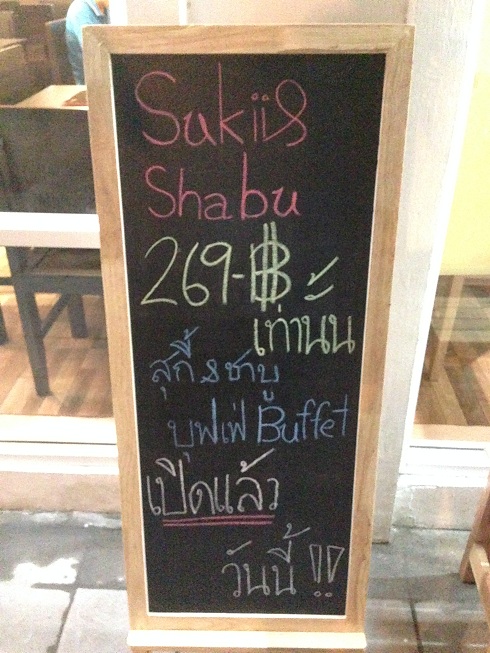 Sukii&
Shabu
269-฿
เท่านั้น
สุกี้ & ชาบู
บุฟเฟ่ Buffet
เปิดแล้ว
วันนี้ !!